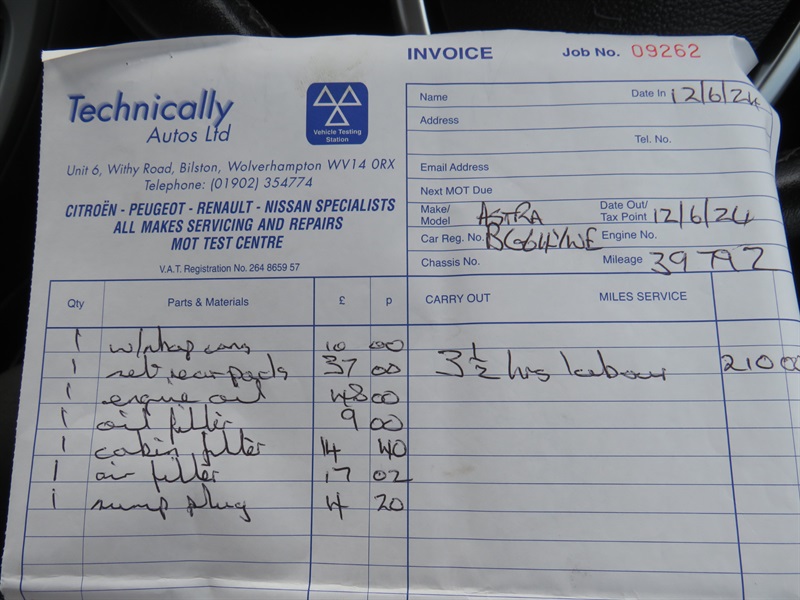 INVOICE Job No. 09262
Technically
Autos Ltd
Vehicle Testing
Station
Unit 6, Withy Road, Bilston, Wolverhampton WV14 0RX
Telephone: (01902) 354774
CITROËN - PEUGEOT - RENAULT - NISSAN SPECIALISTS
ALL MAKES SERVICING AND REPAIRS
MOT TEST CENTRE
V.A.T. Registration No. 264 8659 57
Name Date In 12/6/24
Address
Tel. No.
Email Address
Next MOT Due
Make/
Model ASTRA Date Out/
Tax Point 12/6/24
Car Reg. No. Engine No.
Chassis No. Mileage 39792
Qty Parts & Materials £ p CARRY OUT MILES SERVICE
1 10 00
1 set rear pads 37 00 3½ hrs labour 210 00
1 engine oil 48 00
1 oil filter 9 00
1 cabin filter 14 40
1 air filter 17 02
1 sump plug 4 20